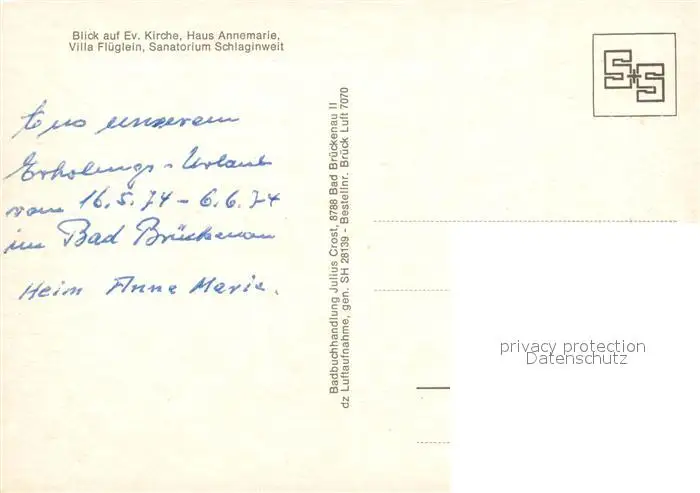 Blick auf Ev. Kirche, Haus Annemarie,
Villa Flüglein, Sanatorium Schlagintweit
S+S
unserem
Erholungs-Urlaub
vom 16.5.74 - 6.6.74
im Bad Brückenau
Heim Anne Marie.
Badbuchhandlung Julius Crost, 8788 Bad Brückenau II
dz Luftaufnahme, gen. SH 28139 - Bestellnr. Brück Luft 7070
privacy protection
Datenschutz